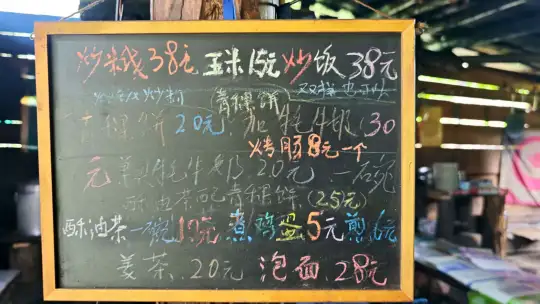 炒米线38元 玉米15元 炒饭38元
青稞饼
饼20元 加牦牛奶(30
烤肠8元一个
元 牦牛奶20元 一碗
酥油茶配青稞饼(25元)
酥油茶一碗10元 煮鸡蛋5元 煎6元
姜茶 20元 泡面 28元